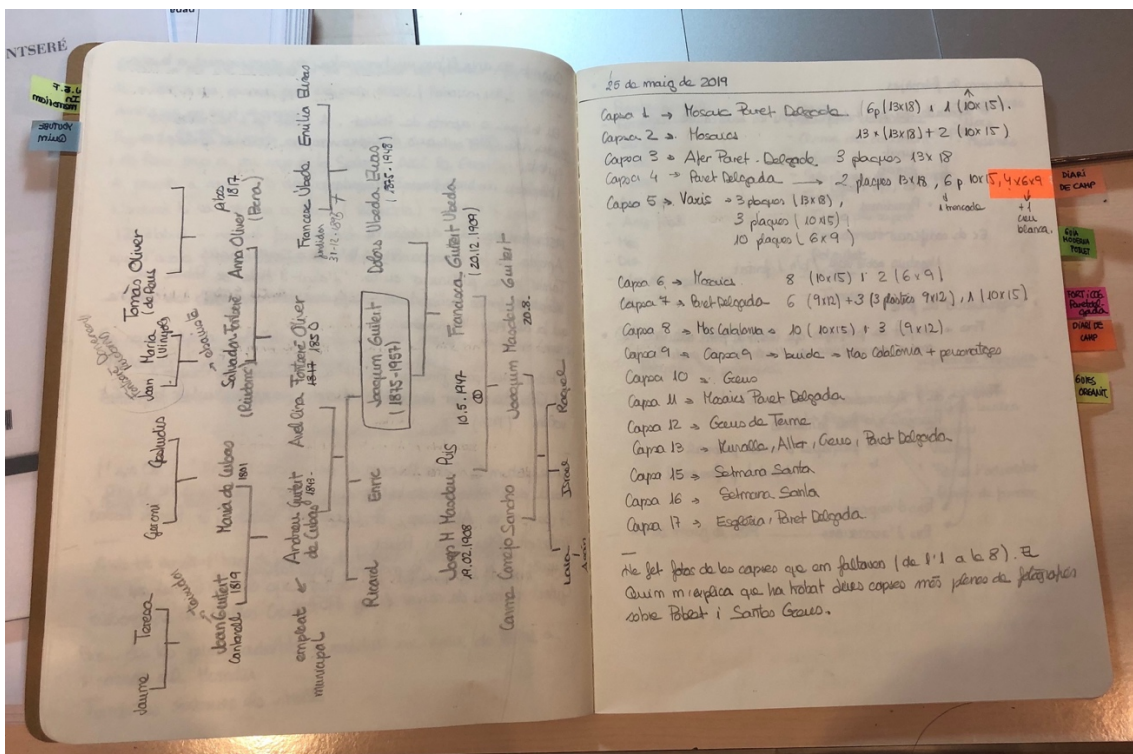 NTSERÉ
Jaume Teresa
Geroni Gertrudis
Joan Maria
(Vinyes)
Tomàs Oliver
(de Reus)
Joan Guitert
1819
Maria de Cubas
1801
Salvador Fontseré
Anna Oliver
1817
empleat
municipal
Andreu Guitert
de Cubas 1843-
Avel·lina Fontseré Oliver
1847 1850
Francesc Ubeda Emilia Elias
31-12-
Ricard Enric
Joaquim Guitert
(1875-1957)
Dolors Ubeda Elias
Josep M Masdeu Puig
19.02.1908
10.5.1947
Francesca Guitert Ubeda
(20.12.1909)
Carme Conejo Sancho
Joaquim Masdeu Guitert
20.8.
Laia Israel Raquel
25 de maig de 2019
Capsa 1 → Mosaic Paret Delgada (6p (13x18) i 1 (10x15).
Capsa 2 → Mosaics 13 x (13x18) + 2 (10x15)
Capsa 3 → Alter Paret-Delgada 3 plaques 13x18
Capsa 4 → Paret Delgada → 2 plaques 13x18, 6p 10x15, 4x6x9
1 trencada
+1
creu
blanca.
Capsa 5 → Varis → 3 plaques (13x18),
3 plaques (10x15)
10 plaques (6x9)
Capsa 6 → Mosaics 8 (10x15) i 2 (6x9)
Capsa 7 → Paret Delgada 6 (9x12) + 3 (3 plàstics 9x12), 1 (10x15)
Capsa 8 → Mas Catalònia → 10 (10x15) i 3 (9x12)
Capsa 9 → Capsa 9 → buida → Mas Catalònia + personatges
Capsa 10 → Creus
Capsa 11 → Mosaics Paret Delgada
Capsa 12 → Creus de Terme
Capsa 13 → Muralla, Alter, Creus, Paret Delgada
Capsa 15 → Setmana Santa
Capsa 16 → Setmana Santa
Capsa 17 → Església, Paret Delgada
—
He fet fotos de les capses que em faltaven (de l'1 a la 8). El
Quim m'explica que ha trobat dues capses més plenes de fotografies
sobre Poblet i Santes Creus.
DIARI
DE CAMP
GUIA
MODERNA
POBLET
PORTICOS
Paretdel-
gada
DIARI DE
CAMP
ORGANIT.
YOUTUBE
QUIM